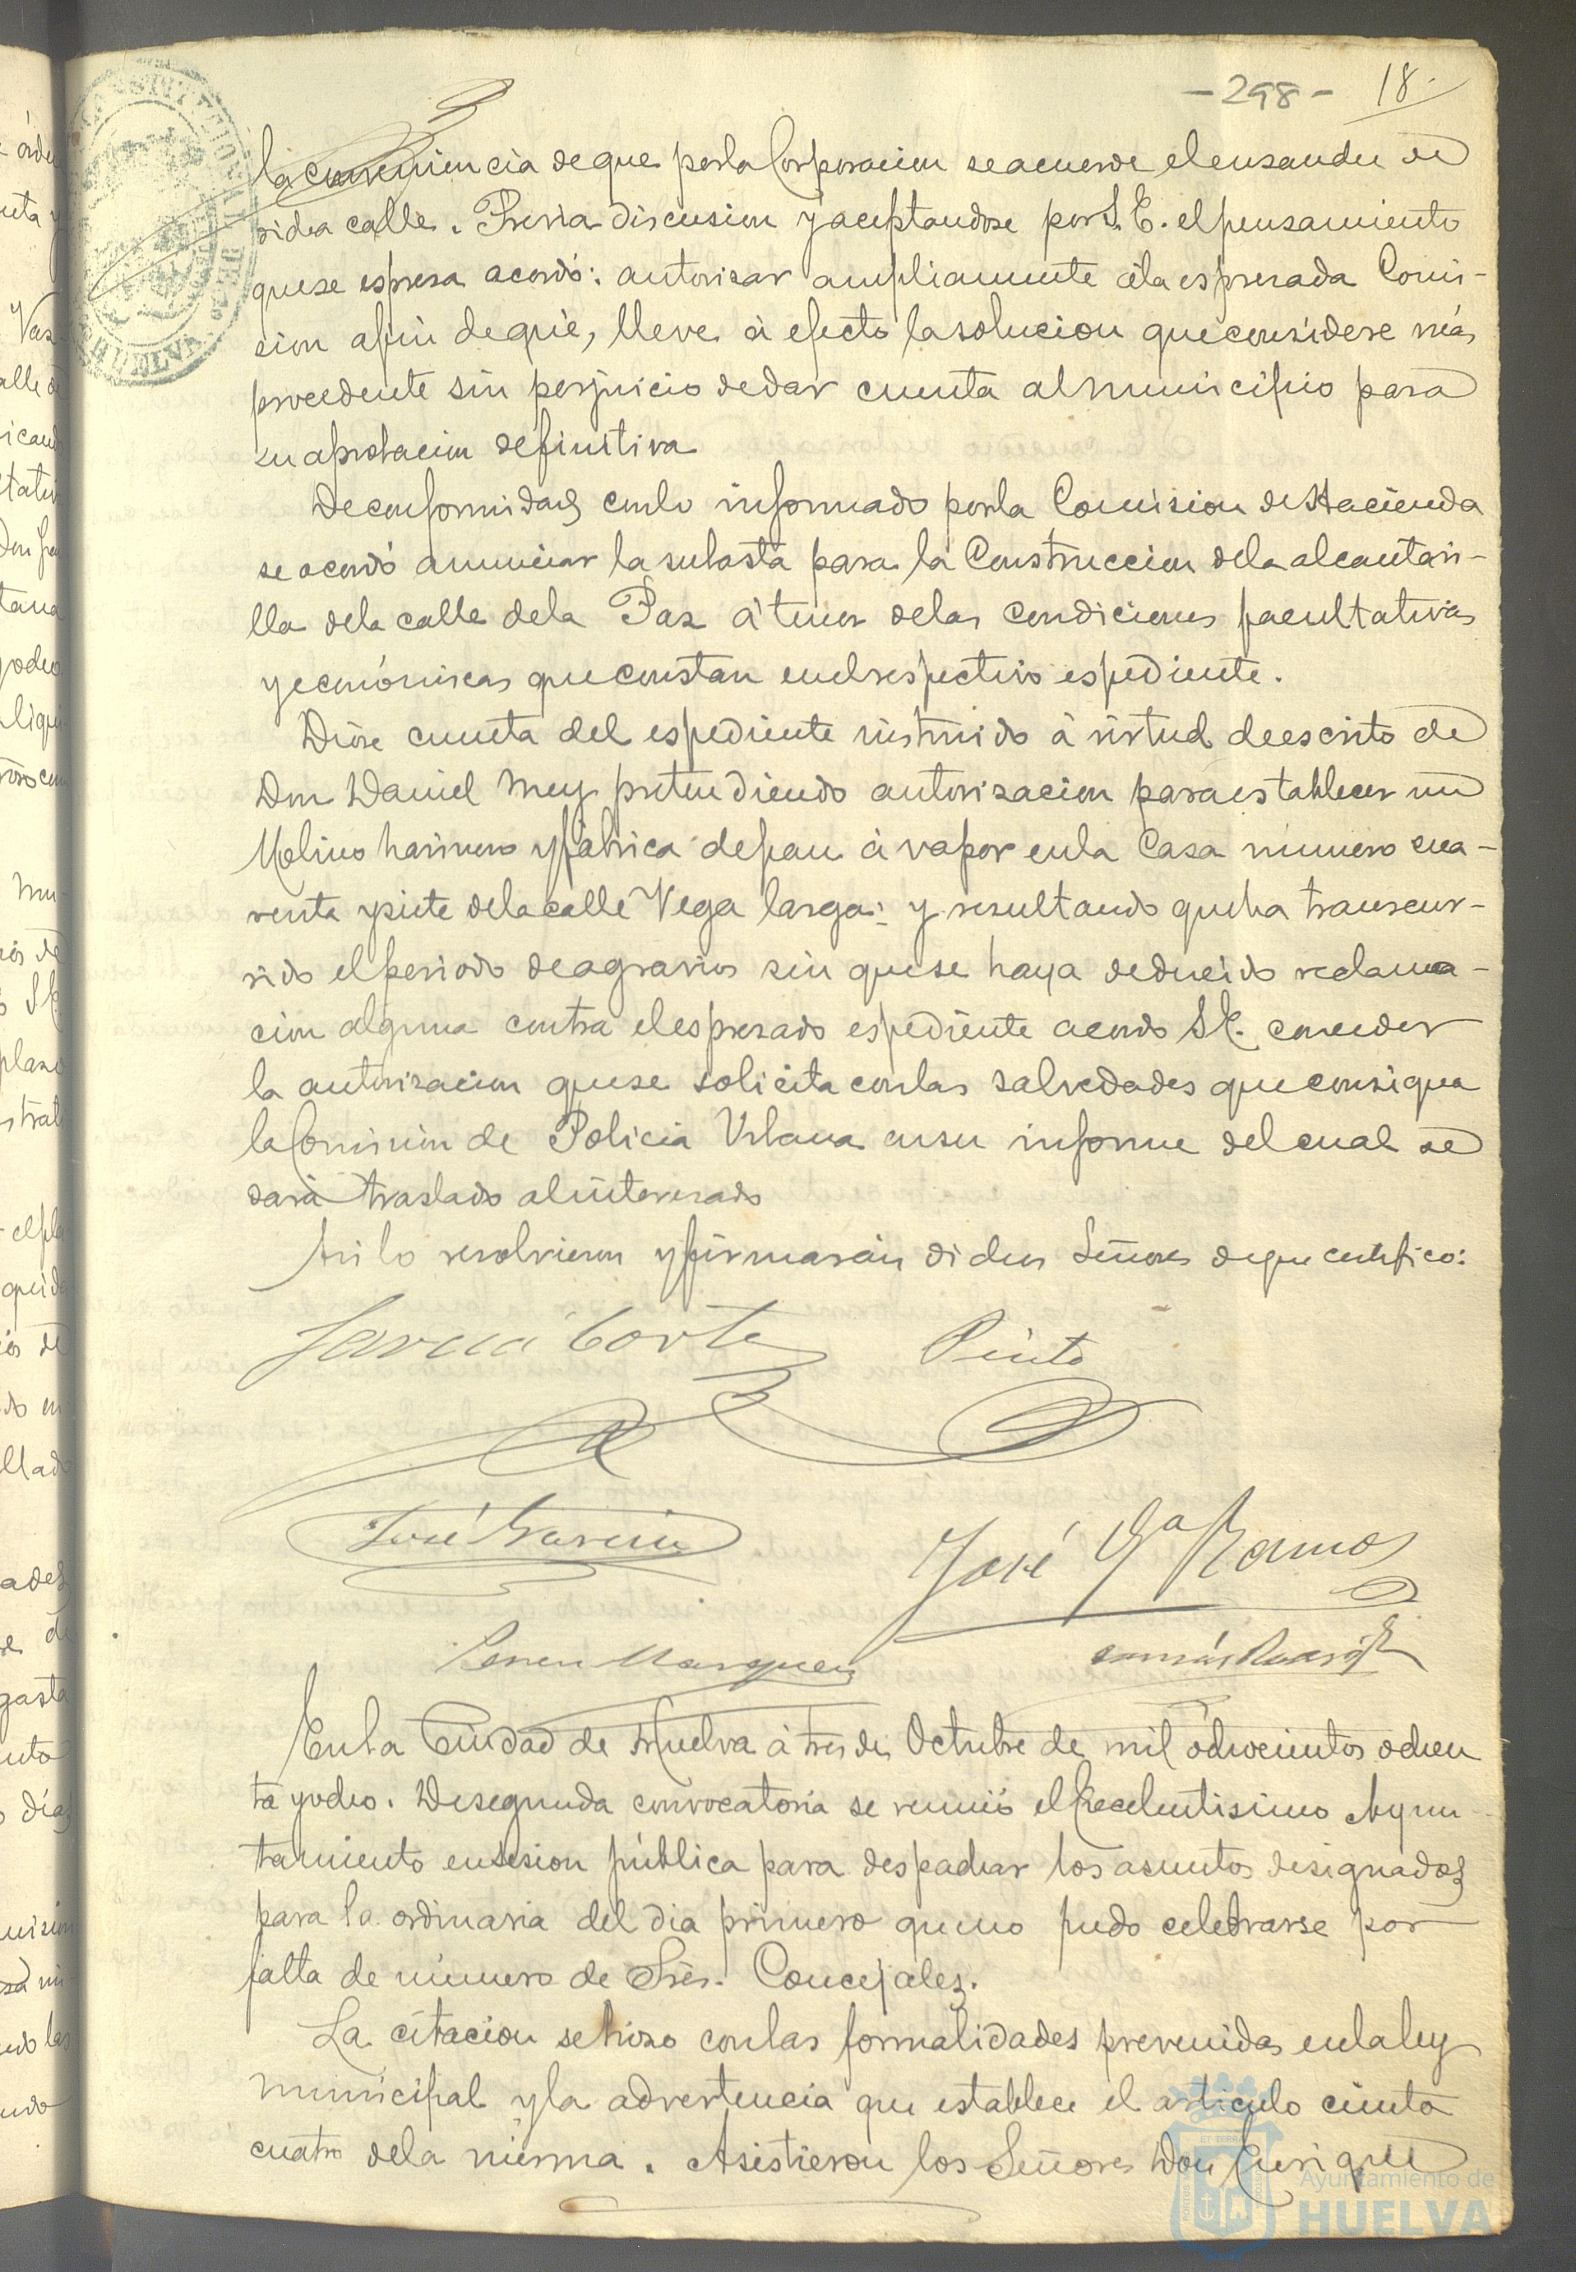 -298- 18
la conveniencia de que por la Corporacion se acuerde el ensanche de
rida calle. Previa discusion y aceptandose por S. E. el pensamiento
que se espresa acordó: autorizar ampliamente á la espresada Comi-
sion afin de que, lleve á efecto la solucion que considere más
procedente sin perjuicio de dar cuenta al municipio para
su aprobacion definitiva
De conformidad con lo informado por la Comision de Hacienda
se acordó anunciar la subasta para la Construccion de la alcantari-
lla de la calle de la Paz á tenor de las condiciones facultativas
y económicas que constan en el respectivo espediente.
Dióse cuenta del espediente instruido á virtud de escrito de
Don Daniel Mey pretendiendo autorizacion para establecer un
Molino harinero y fábrica de pan á vapor en la Casa número cua-
renta y siete de la calle Vega larga: y resultando que ha transcur-
rido el periodo de agravios sin que se haya deducido reclama-
cion alguna contra el espresado espediente acordó S. E. conceder
la autorizacion que se solicita con las salvedades que consigna
la Comision de Policia Urbana en su informe del cual se
dará traslado al interesado
Asi lo resolvieron y firmarán dichos Señores de que certifico:
Garcia Cortes Pinto
José Garcia José Gª Ramos
Marquez
En la Ciudad de Huelva á tres de Octubre de mil ochocientos ochen
ta y ocho. De segunda convocatoria se reunió el Excelentisimo Ayun-
tamiento en sesion pública para despachar los asuntos designados
para la ordinaria del dia primero que no pudo celebrarse por
falta de número de Sres. Concejales.
La citacion se hizo con las formalidades prevenidas en la ley
municipal y la advertencia que establece el articulo ciento
cuatro de la misma. Asistieron los Señores Don Enrique
Ayuntamiento de
HUELVA